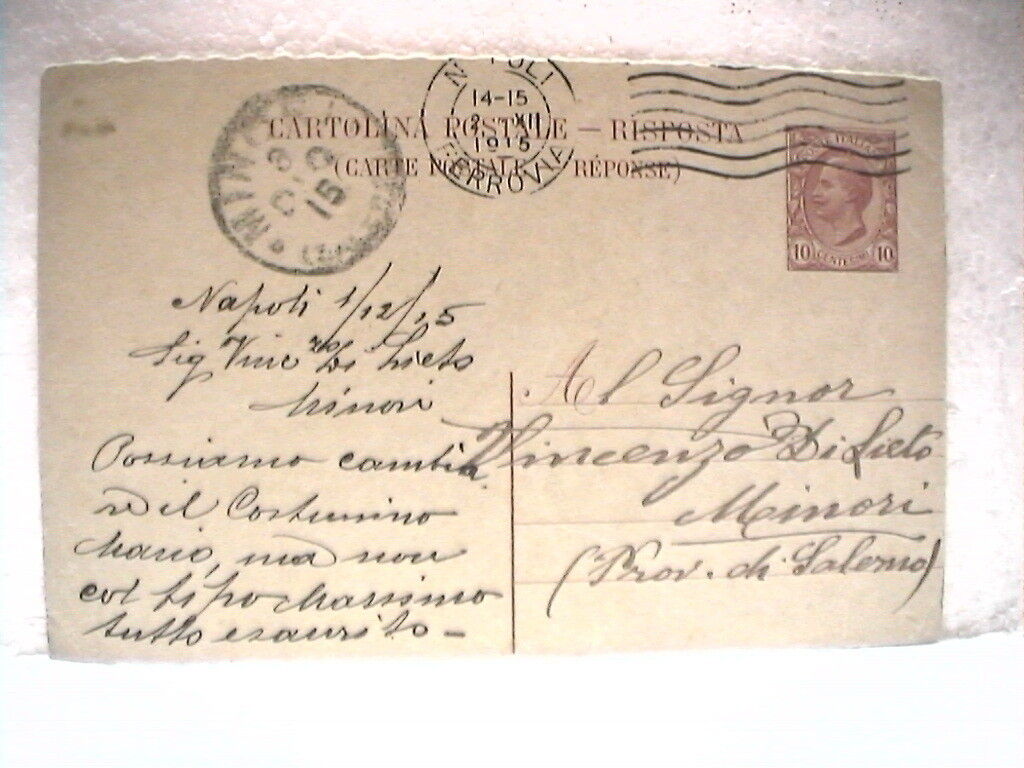 NAPOLI
14-15
2 XII
1915
FERROVIA
CARTOLINA POSTALE — RISPOSTA
(CARTE POSTALE — RÉPONSE)
MINORI
15
10 CENTESIMI 10
Napoli 1/12/15
Sig Vinc zo Di Lieto
Minori
Possiamo cambia
re il Costumino
Mario, ma non
col tipo Massimo
tutto esaurito —
Al Signor
Vincenzo Di Lieto
Minori
(Prov. di Salerno)